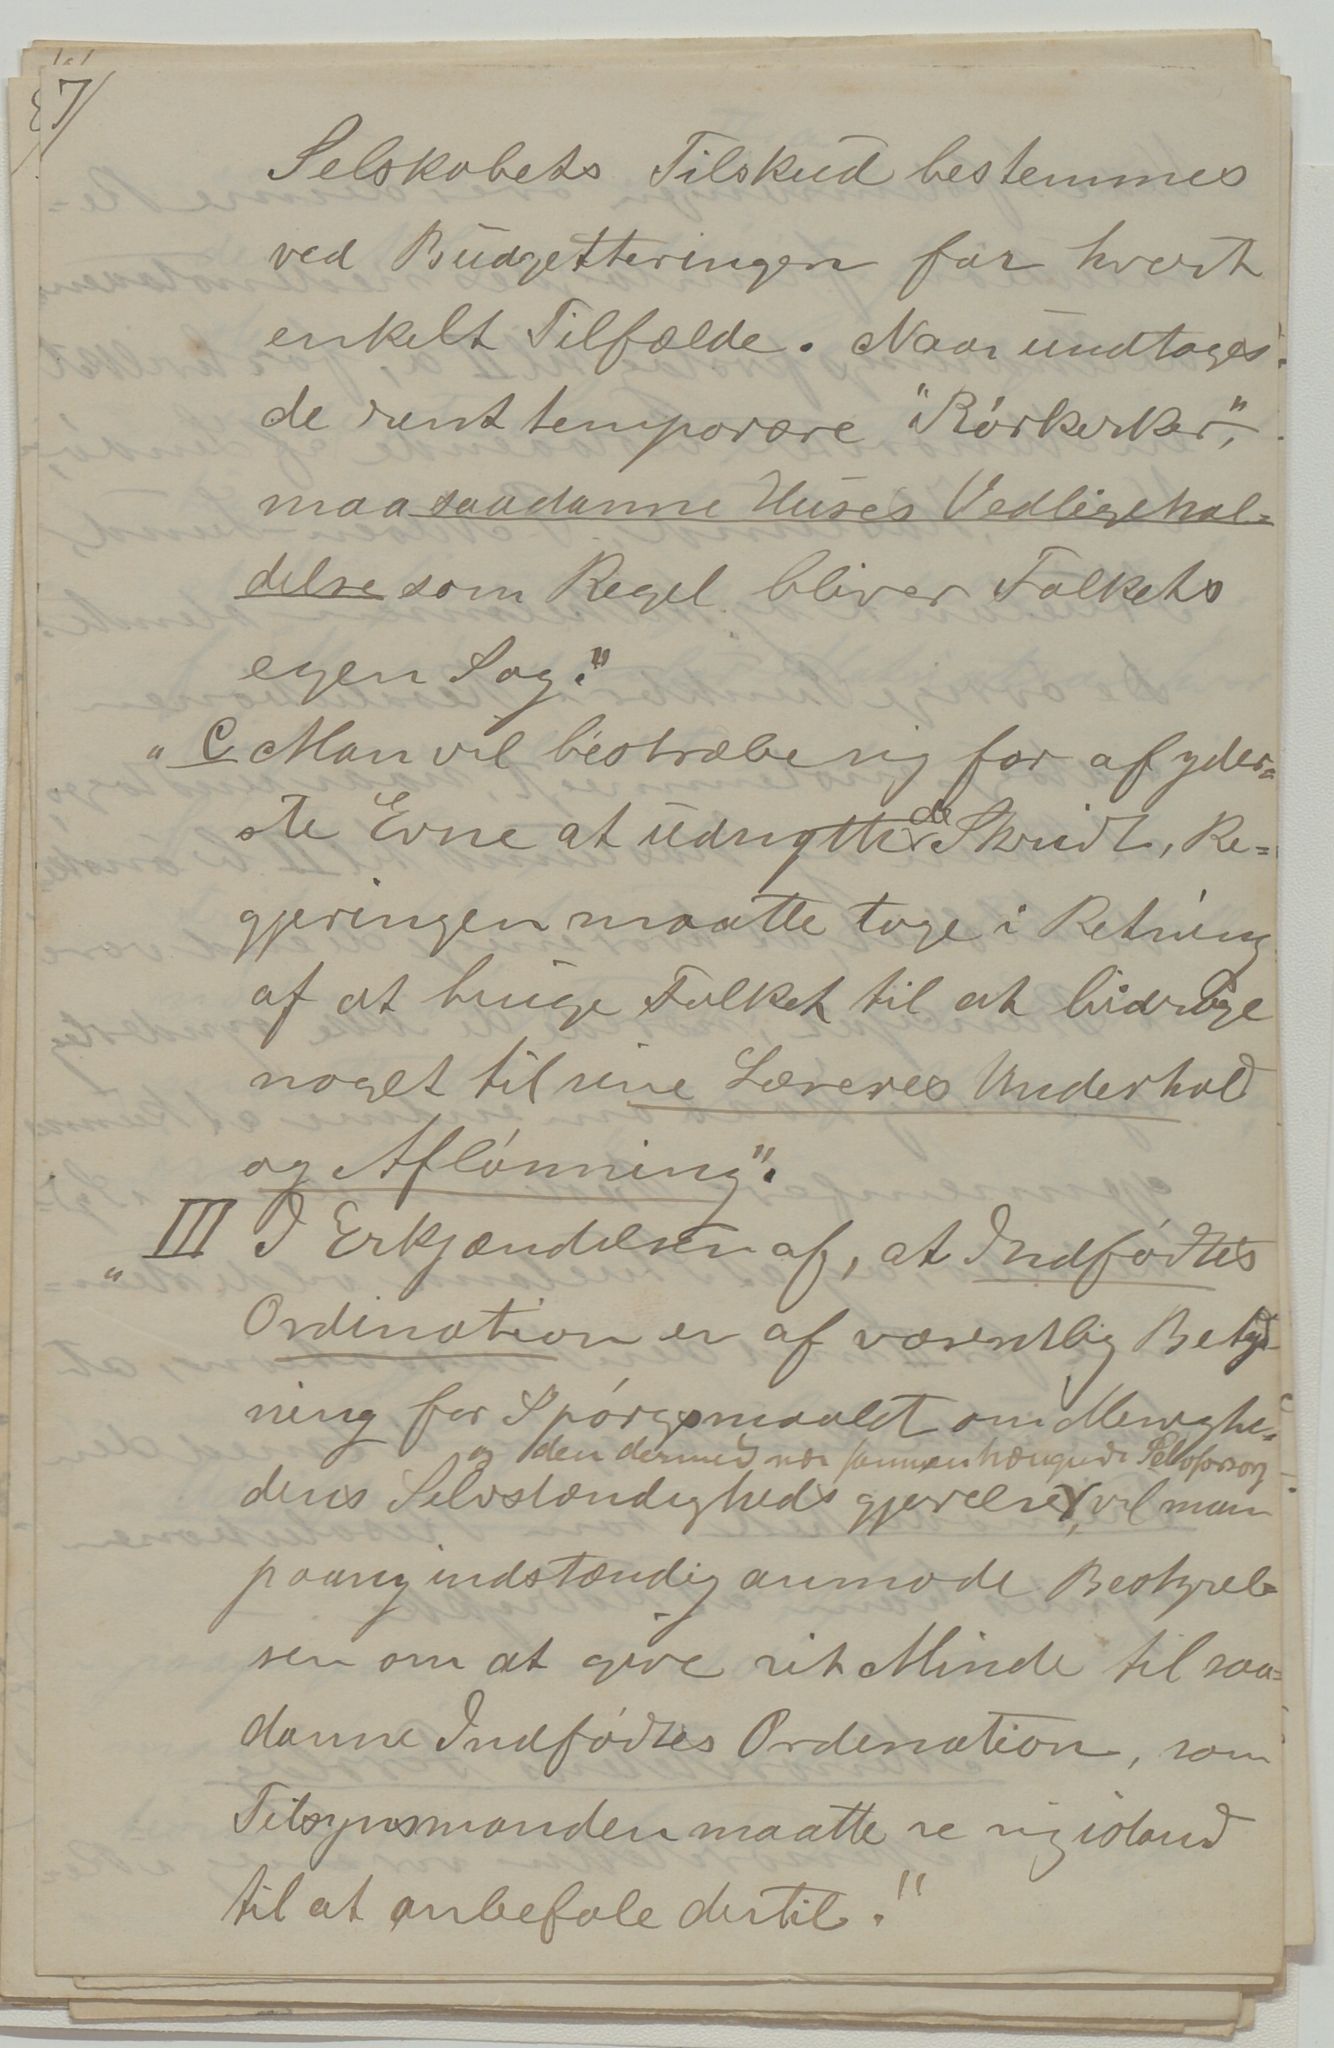 7/
Selskabets Tilskud bestemmes
ved Budgetteringen for hvert
enkelt Tilfælde. Naar undtages
de rent temporære "Rörkirker",
maa saadanne Huses Vedligehol=
delse som Regel bliver Folkets
egen Sag."
"c Man vil bestræbe sig for af yder=
ste Evne at udnytte de Skridt, Re=
gjeringen maatte tage i Retning
af at bruge Folket til at bidrage
noget til sine Læreres Underhold
og Aflönning".
"III I Erkjændelsen af, at Indfödtes
Ordination er af væsentlig Betyd-
ning for Spörgsmaalet om Menighe-
og den dermed nær sammenhængende Selvforsörg
dens Selvstændigheds gjörelse, vil man
paany indstændig anmode Bestyrel=
sen om at give sit Minde til saa=
danne Indfödtes Ordination, som
Tilsynsmanden maatte se sig istand
til at anbefale dertil."